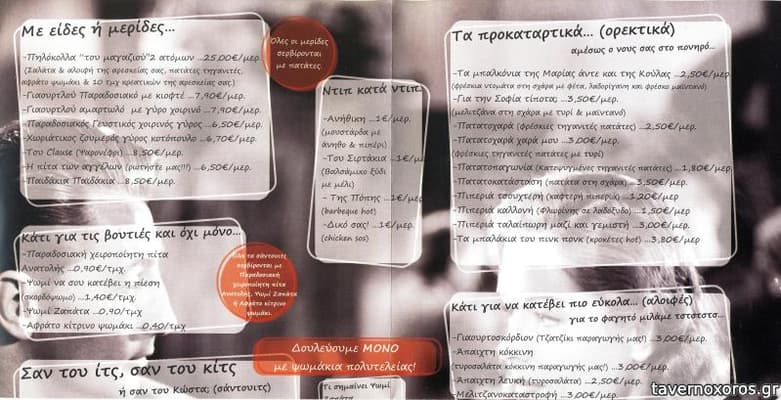 Με είδες ή μερίδες...
-Πηλόκολλα "του μαγαζιού"2 ατόμων ...25,00€/μερ.
(Σαλάτα & αλοιφή της αρεσκείας σας, πατάτες τηγανιτές,
αφράτο ψωμάκι & 10 τμχ κρεατικών της αρεσκείας σας.)
-Γιαουρτλού Παραδοσιακό με κιοφτέ ...7,90€/μερ.
-Γιαουρτλού αμαρτωλό με γύρο χοιρινό ...7,90€/μερ.
-Παραδοσιακός Γευστικός χοιρινός γύρος ...6,50€/μερ.
-Χωριάτικος ζουμερός γύρος κοτόπουλο ...6,70€/μερ.
-Του Clause (Ψαρονέφρι) ...8,50€/μερ.
-Η πίτα των αγγέλων (ρωτήστε μας!!!) ...6,50€/μερ.
-Παιδάκια Παιδάκια ...8,50€/μερ.
Όλες οι μερίδες
σερβίρονται
με πατάτες.
Κάτι για τις βουτιές και όχι μόνο...
-Παραδοσιακή χειροποίητη πίτα
Ανατολής ...0,90€/τμχ.
-Ψωμί να σου κατέβει η πίεση
(σκορδόψωμο) ...1,40€/τμχ.
-Ψωμί Ζαπάτα ...0,90/τμχ
-Αφράτο κίτρινο ψωμάκι ...0,40/τμχ
Όλα τα σάντουιτς
σερβίρονται με
Παραδοσιακή
χειροποίητη πίτα
Ανατολής, Ψωμί Ζαπάτα
ή Αφράτο κίτρινο
ψωμάκι.
Σαν του ιτς, σαν του κιτς
ή σαν του Κώστα; (σάντουιτς)
Ντιπ κατά ντιπ..
-Ανήθικη ...1€/μερ.
(μουστάρδα με
άνηθο & πιπέρι)
-Του Σιρτάκια ...1€/μερ
(Βαλσάμικο ξύδι
με μέλι)
- Της Πόπης ...1€/μερ
(barbeque hot)
-Δικό σας! ...1€/μερ.
(chicken sos)
Δουλεύουμε ΜΟΝΟ
με ψωμάκια πολυτελείας!
Τι σημαίνει Ψωμί
Ζαπάτα
Τα προκαταρτικά... (ορεκτικά)
αμέσως ο νους σας στο πονηρό...
-Τα μπαλκόνια της Μαρίας άντε και της Κούλας ...2,50€/μερ.
(φρέσκια ντομάτα στη σχάρα με φέτα, λαδορίγανη και φρέσκο μαϊντανό)
-Για την Σοφία τίποτα; ...3,50€/μερ.
(μελιτζάνα στη σχάρα με τυρί & μαϊντανό)
-Πατατοχαρά (φρέσκιες τηγανιτές πατάτες) ...2,50€/μερ.
-Πατατοχαρά μου ...3,00€/μερ.
(φρέσκιες τηγανιτές πατάτες με τυρί)
-Πατατοπαγωνία (κατεψυγμένες τηγανιτές πατάτες) ...1,80€/μερ.
-Πατατοκατάσταση (πατάτα στη σχάρα) ...3,50€/μερ.
-Πιπεριά τσουχτερή (καφτερή πιπεριά) ...1,20€/μερ
-Πιπεριά καλλονή (Φλωρίνης σε λαδόξυδο) ...1,50€/μερ
-Πιπεριά ταλαίπωρη μαζί και γεμιστή ...3,00€/μερ.
-Τα μπαλάκια του πινκ πονκ (κροκέτες hot) ...3,80€/μερ
Κάτι για να κατέβει πιο εύκολα... (αλοιφές)
για το φαγητό μιλάμε τστστστς...
-Γιαουρτοσκόρδιον (Τζατζίκι παραγωγής μας!) ...3,00€/μερ.
-Άπαιχτη κόκκινη
(τυροσαλάτα κόκκινη παραγωγής μας!) ...3,00€/μερ.
-Άπαιχτη λευκή (τυροσαλάτα) ...2,50€/μερ.
-Μελιτζανοκαταστροφή ...3,00€/μερ.
tavernoxoros.gr